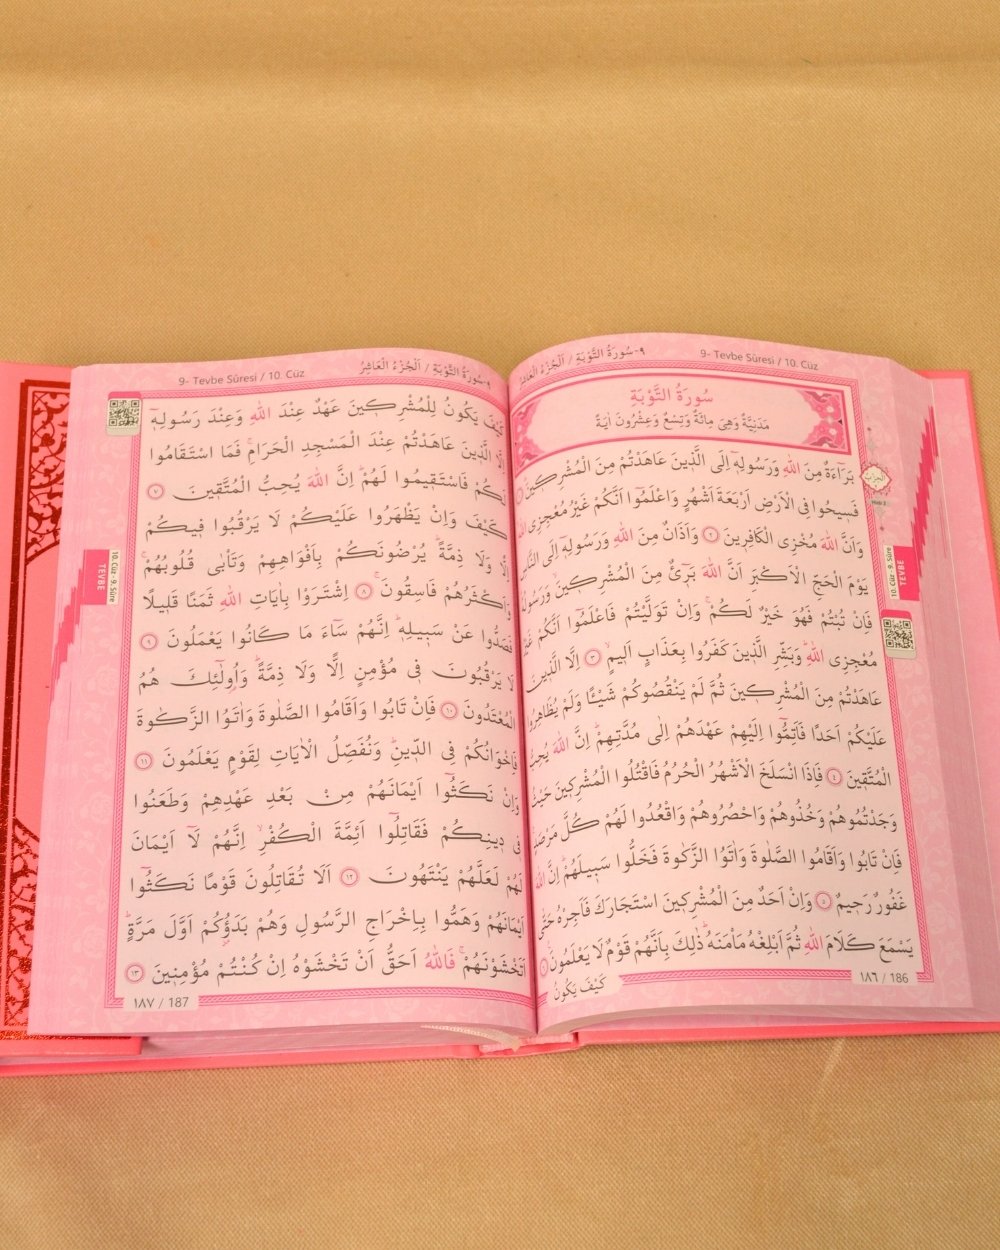 ٩-سُورَةُ التَّوْبَةِ / اَلْجُزْءُ الْعَاشِرُ 9- Tevbe Sûresi / 10. Cüz
سُورَةُ التَّوْبَةِ
مَدَنِيَّةٌ وَهِىَ مِائَةٌ وَتِسْعٌ وَعِشْرُونَ اٰيَةً
بَرَٓاءَةٌ مِنَ اللّٰهِ وَرَسُولِهٖٓ اِلَى الَّذٖينَ عَاهَدْتُمْ مِنَ الْمُشْرِكٖينَ
فَسٖيحُوا فِى الْاَرْضِ اَرْبَعَةَ اَشْهُرٍ وَاعْلَمُٓوا اَنَّكُمْ غَيْرُ مُعْجِزِى اللّٰهِ
وَاَنَّ اللّٰهَ مُخْزِى الْكَافِرٖينَ ﴿٢﴾ وَاَذَانٌ مِنَ اللّٰهِ وَرَسُولِهٖٓ اِلَى النَّاسِ
يَوْمَ الْحَجِّ الْاَكْبَرِ اَنَّ اللّٰهَ بَرٖٓىءٌ مِنَ الْمُشْرِكٖينَ وَرَسُولُهُ
فَاِنْ تُبْتُمْ فَهُوَ خَيْرٌ لَكُمْ وَاِنْ تَوَلَّيْتُمْ فَاعْلَمُٓوا اَنَّكُمْ غَيْرُ
مُعْجِزِى اللّٰهِ وَبَشِّرِ الَّذٖينَ كَفَرُوا بِعَذَابٍ اَلٖيمٍ ﴿٣﴾ اِلَّا الَّذٖينَ
عَاهَدْتُمْ مِنَ الْمُشْرِكٖينَ ثُمَّ لَمْ يَنْقُصُوكُمْ شَيْـًٔا وَلَمْ يُظَاهِرُوا
عَلَيْكُمْ اَحَدًا فَاَتِمُّٓوا اِلَيْهِمْ عَهْدَهُمْ اِلٰى مُدَّتِهِمْ اِنَّ اللّٰهَ يُحِبُّ
الْمُتَّقٖينَ ﴿٤﴾ فَاِذَا انْسَلَخَ الْاَشْهُرُ الْحُرُمُ فَاقْتُلُوا الْمُشْرِكٖينَ حَيْثُ
وَجَدْتُمُوهُمْ وَخُذُوهُمْ وَاحْصُرُوهُمْ وَاقْعُدُوا لَهُمْ كُلَّ مَرْصَدٍ
فَاِنْ تَابُوا وَاَقَامُوا الصَّلٰوةَ وَاٰتَوُا الزَّكٰوةَ فَخَلُّوا سَبٖيلَهُمْ اِنَّ اللّٰهَ
غَفُورٌ رَحٖيمٌ ﴿٥﴾ وَاِنْ اَحَدٌ مِنَ الْمُشْرِكٖينَ اسْتَجَارَكَ فَاَجِرْهُ حَتّٰى
يَسْمَعَ كَلَامَ اللّٰهِ ثُمَّ اَبْلِغْهُ مَأْمَنَهُ ذٰلِكَ بِاَنَّهُمْ قَوْمٌ لَا يَعْلَمُونَ
كَيْفَ يَكُونُ
١٨٦ / 186
الحزب
Hizb 2
10. Cüz - 9. Sûre
TEVBE
9- Tevbe Sûresi / 10. Cüz ٩-سُورَةُ التَّوْبَةِ / اَلْجُزْءُ الْعَاشِرُ
كَيْفَ يَكُونُ لِلْمُشْرِكٖينَ عَهْدٌ عِنْدَ اللّٰهِ وَعِنْدَ رَسُولِهٖٓ
اِلَّا الَّذٖينَ عَاهَدْتُمْ عِنْدَ الْمَسْجِدِ الْحَرَامِ فَمَا اسْتَقَامُوا
لَكُمْ فَاسْتَقٖيمُوا لَهُمْ اِنَّ اللّٰهَ يُحِبُّ الْمُتَّقٖينَ ﴿٧﴾
كَيْفَ وَاِنْ يَظْهَرُوا عَلَيْكُمْ لَا يَرْقُبُوا فٖيكُمْ
اِلًّا وَلَا ذِمَّةً يُرْضُونَكُمْ بِاَفْوَاهِهِمْ وَتَأْبٰى قُلُوبُهُمْ
وَاَكْثَرُهُمْ فَاسِقُونَ ﴿٨﴾ اِشْتَرَوْا بِاٰيَاتِ اللّٰهِ ثَمَنًا قَلٖيلًا
فَصَدُّوا عَنْ سَبٖيلِهٖ اِنَّهُمْ سَٓاءَ مَا كَانُوا يَعْمَلُونَ ﴿٩﴾
لَا يَرْقُبُونَ فٖى مُؤْمِنٍ اِلًّا وَلَا ذِمَّةً وَاُولٰٓئِكَ هُمُ
الْمُعْتَدُونَ ﴿١٠﴾ فَاِنْ تَابُوا وَاَقَامُوا الصَّلٰوةَ وَاٰتَوُا الزَّكٰوةَ
فَاِخْوَانُكُمْ فِى الدّٖينِ وَنُفَصِّلُ الْاٰيَاتِ لِقَوْمٍ يَعْلَمُونَ ﴿١١﴾
وَاِنْ نَكَثُٓوا اَيْمَانَهُمْ مِنْ بَعْدِ عَهْدِهِمْ وَطَعَنُوا
فٖى دٖينِكُمْ فَقَاتِلُٓوا اَئِمَّةَ الْكُفْرِ اِنَّهُمْ لَٓا اَيْمَانَ
لَهُمْ لَعَلَّهُمْ يَنْتَهُونَ ﴿١٢﴾ اَلَا تُقَاتِلُونَ قَوْمًا نَكَثُٓوا
اَيْمَانَهُمْ وَهَمُّوا بِاِخْرَاجِ الرَّسُولِ وَهُمْ بَدَؤُكُمْ اَوَّلَ مَرَّةٍ
اَتَخْشَوْنَهُمْ فَاللّٰهُ اَحَقُّ اَنْ تَخْشَوْهُ اِنْ كُنْتُمْ مُؤْمِنٖينَ ﴿١٣﴾
١٨٧ / 187
10. Cüz - 9. Sûre
TEVBE